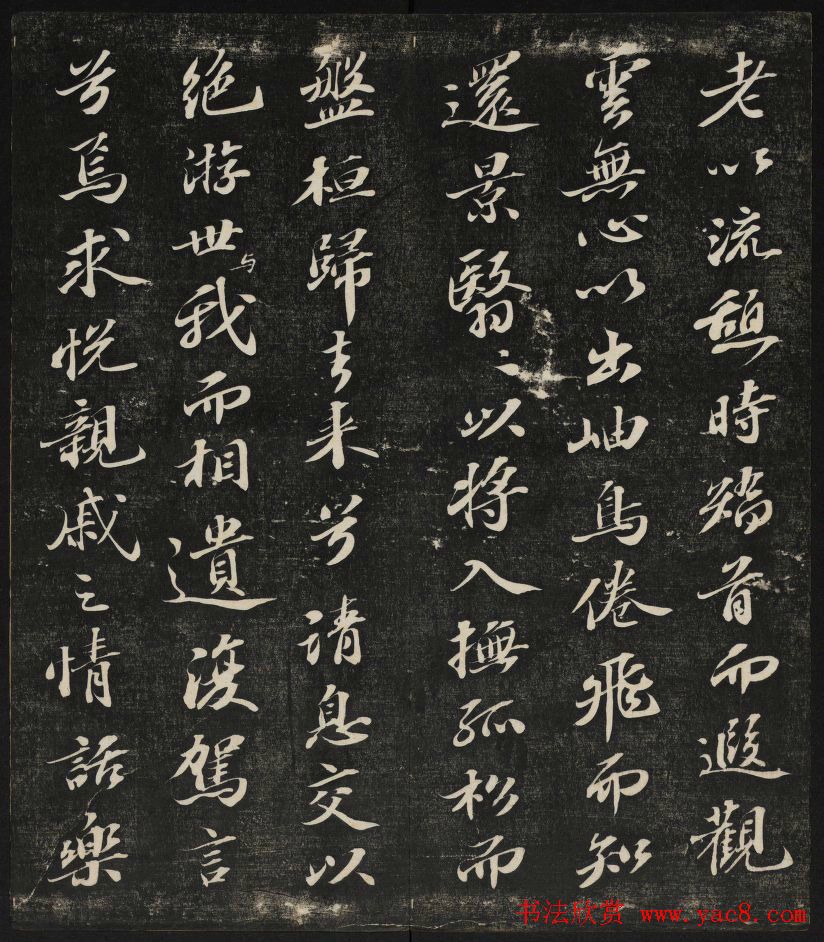 老以流憩時矯首而遐觀
雲無心以出岫鳥倦飛而知
還景翳〻以將入撫孤松而
盤桓歸去来兮請息交以
絶游世与我而相遺復駕言
兮焉求悅親戚之情話樂
书法欣赏 www.yac8.com